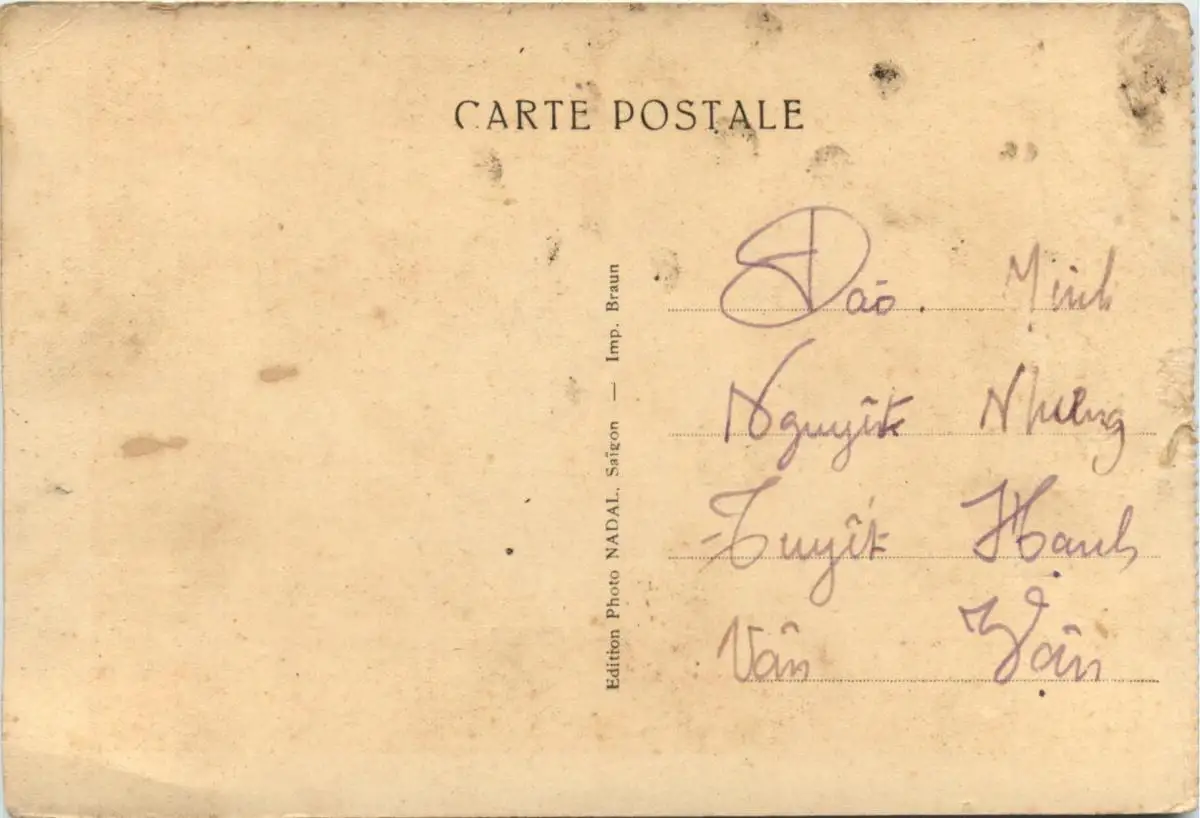 CARTE POSTALE
Edition Photo NADAL, Saïgon — Imp. Braun
Đào. Minh
Nguyệt Nhung
Tuyết Hạnh
Vân Vân